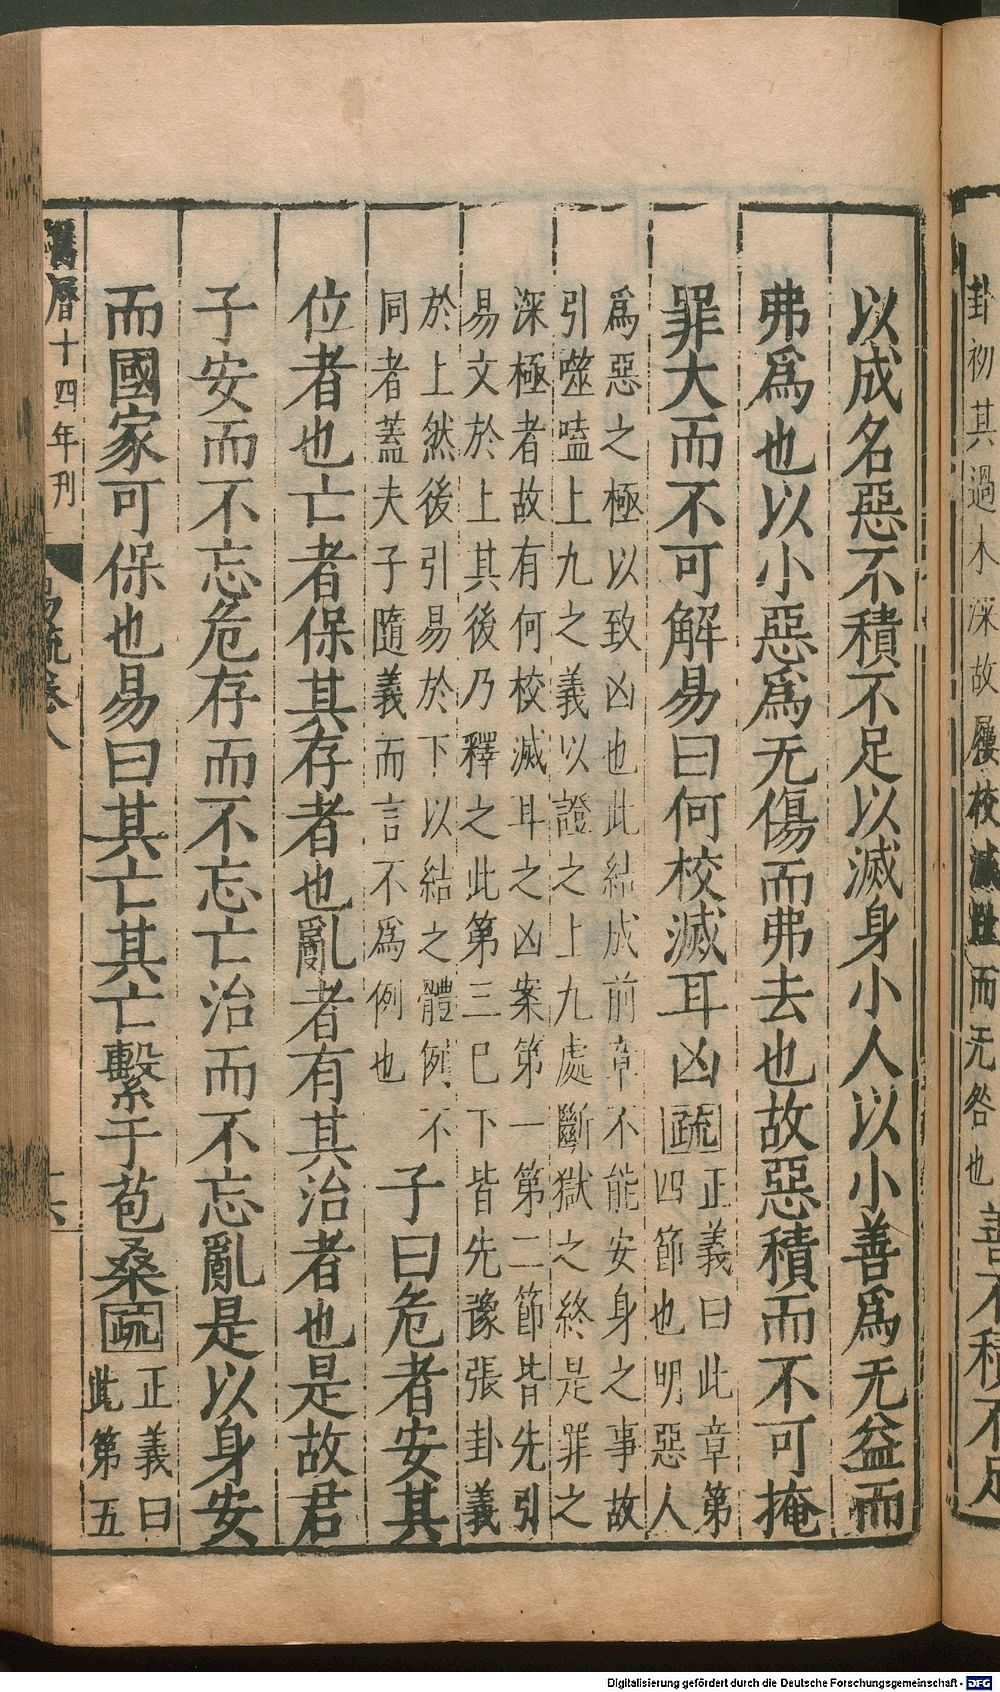 卦初其過未深故屨校滅趾而无咎也善不積不足
以成名惡不積不足以滅身小人以小善爲无益而
弗爲也以小惡爲无傷而弗去也故惡積而不可掩
罪大而不可解易曰何校滅耳凶疏正義曰此章第
四節也明惡人
爲惡之極以致凶也此結成前章不能安身之事故
引噬嗑上九之義以證之上九處斷獄之終是罪之
深極者故有何校滅耳之凶案第一第二節皆先引
易文於上其後乃釋之此第三巳下皆先豫張卦義
於上然後引易於下以結之體例不
同者蓋夫子隨義而言不爲例也子曰危者安其
位者也亡者保其存者也亂者有其治者也是故君
子安而不忘危存而不忘亡治而不忘亂是以身安
而國家可保也易曰其亡其亡繫于苞桑疏正義曰
此第五
萬曆十四年刊 易疏卷八 十六
Digitalisierung gefördert durch die Deutsche Forschungsgemeinschaft - DFG